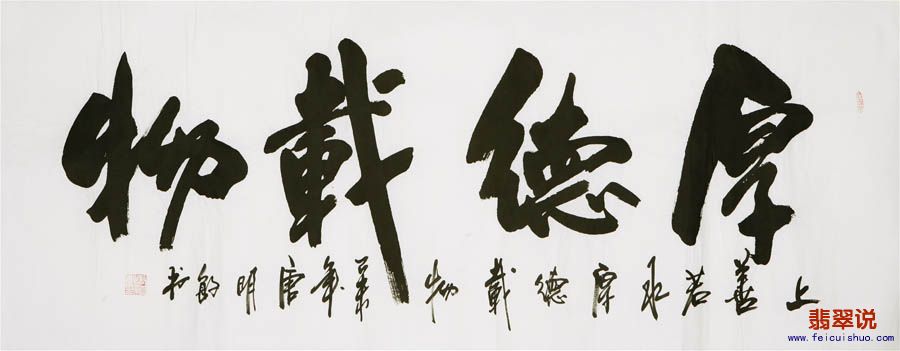 厚德載物
上善若水厚德載物
年唐明
書
翡翠说
www.feicuishuo.com